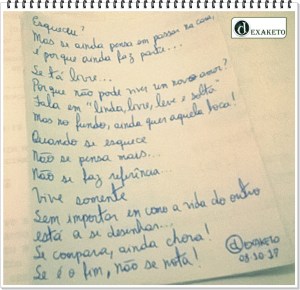 DEXAKETO
Esqueceu?
Mas se ainda pensa em passar na cara,
é porque ainda faz parte...
Se tá livre...
Por que não pode viver um novo amor?
Fala em "linda, livre, leve e solta"
Mas no fundo, ainda quer aquela boca!
Quando se esquece
Não se pensa mais...
Não se faz referência...
Vive somente
Sem importar em como a vida do outro
está a se desenhar...
Se compara, ainda chora!
Se é o fim, não se nota!
DEXAKETO
08.10.17